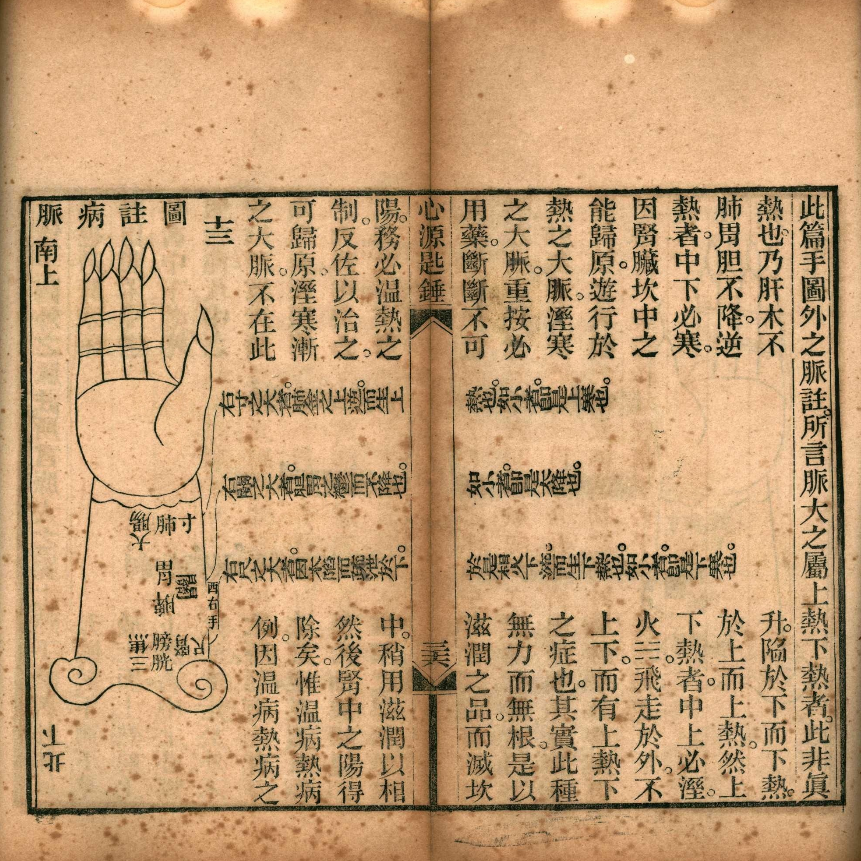 此篇手圖外之脈註。所言脈大之屬。上熱下熱者。此非眞
熱也。乃肝木不升。陷於下而下熱。
肺胃胆不降。逆於上而上熱。然上
熱者。中下必寒。下熱者。中上必溼。
因腎臟坎中之火三飛走於外。不
能歸原。遊行於上下。而有上熱下
熱之大脈。溼寒之症也。其實此種
之大脈。重按必無力而無根。是以
用藥。斷斷不可滋潤之品。而滅坎
熱也。如小者。即是上寒也。
如小者。即是太降也。
於是相火下而生下熱也。如小者。即是下寒也。
心源匙錘
三六
陽。務必温熱之中。稍用滋潤以相
制。反佐以治之。然後腎中之陽得
可歸原。溼寒漸除矣。惟温病熱病
之大脈。不在此例。因温病熱病之
右寸之大者。肺金之上逆。而生上
右關之大者。胆胃之鬱而不降也。
右尺之大者。因太而泄於下。
十三
圖註病脈
南上
寸肺大腸
關胃脾
尺腎膀胱三焦
西右手
北下